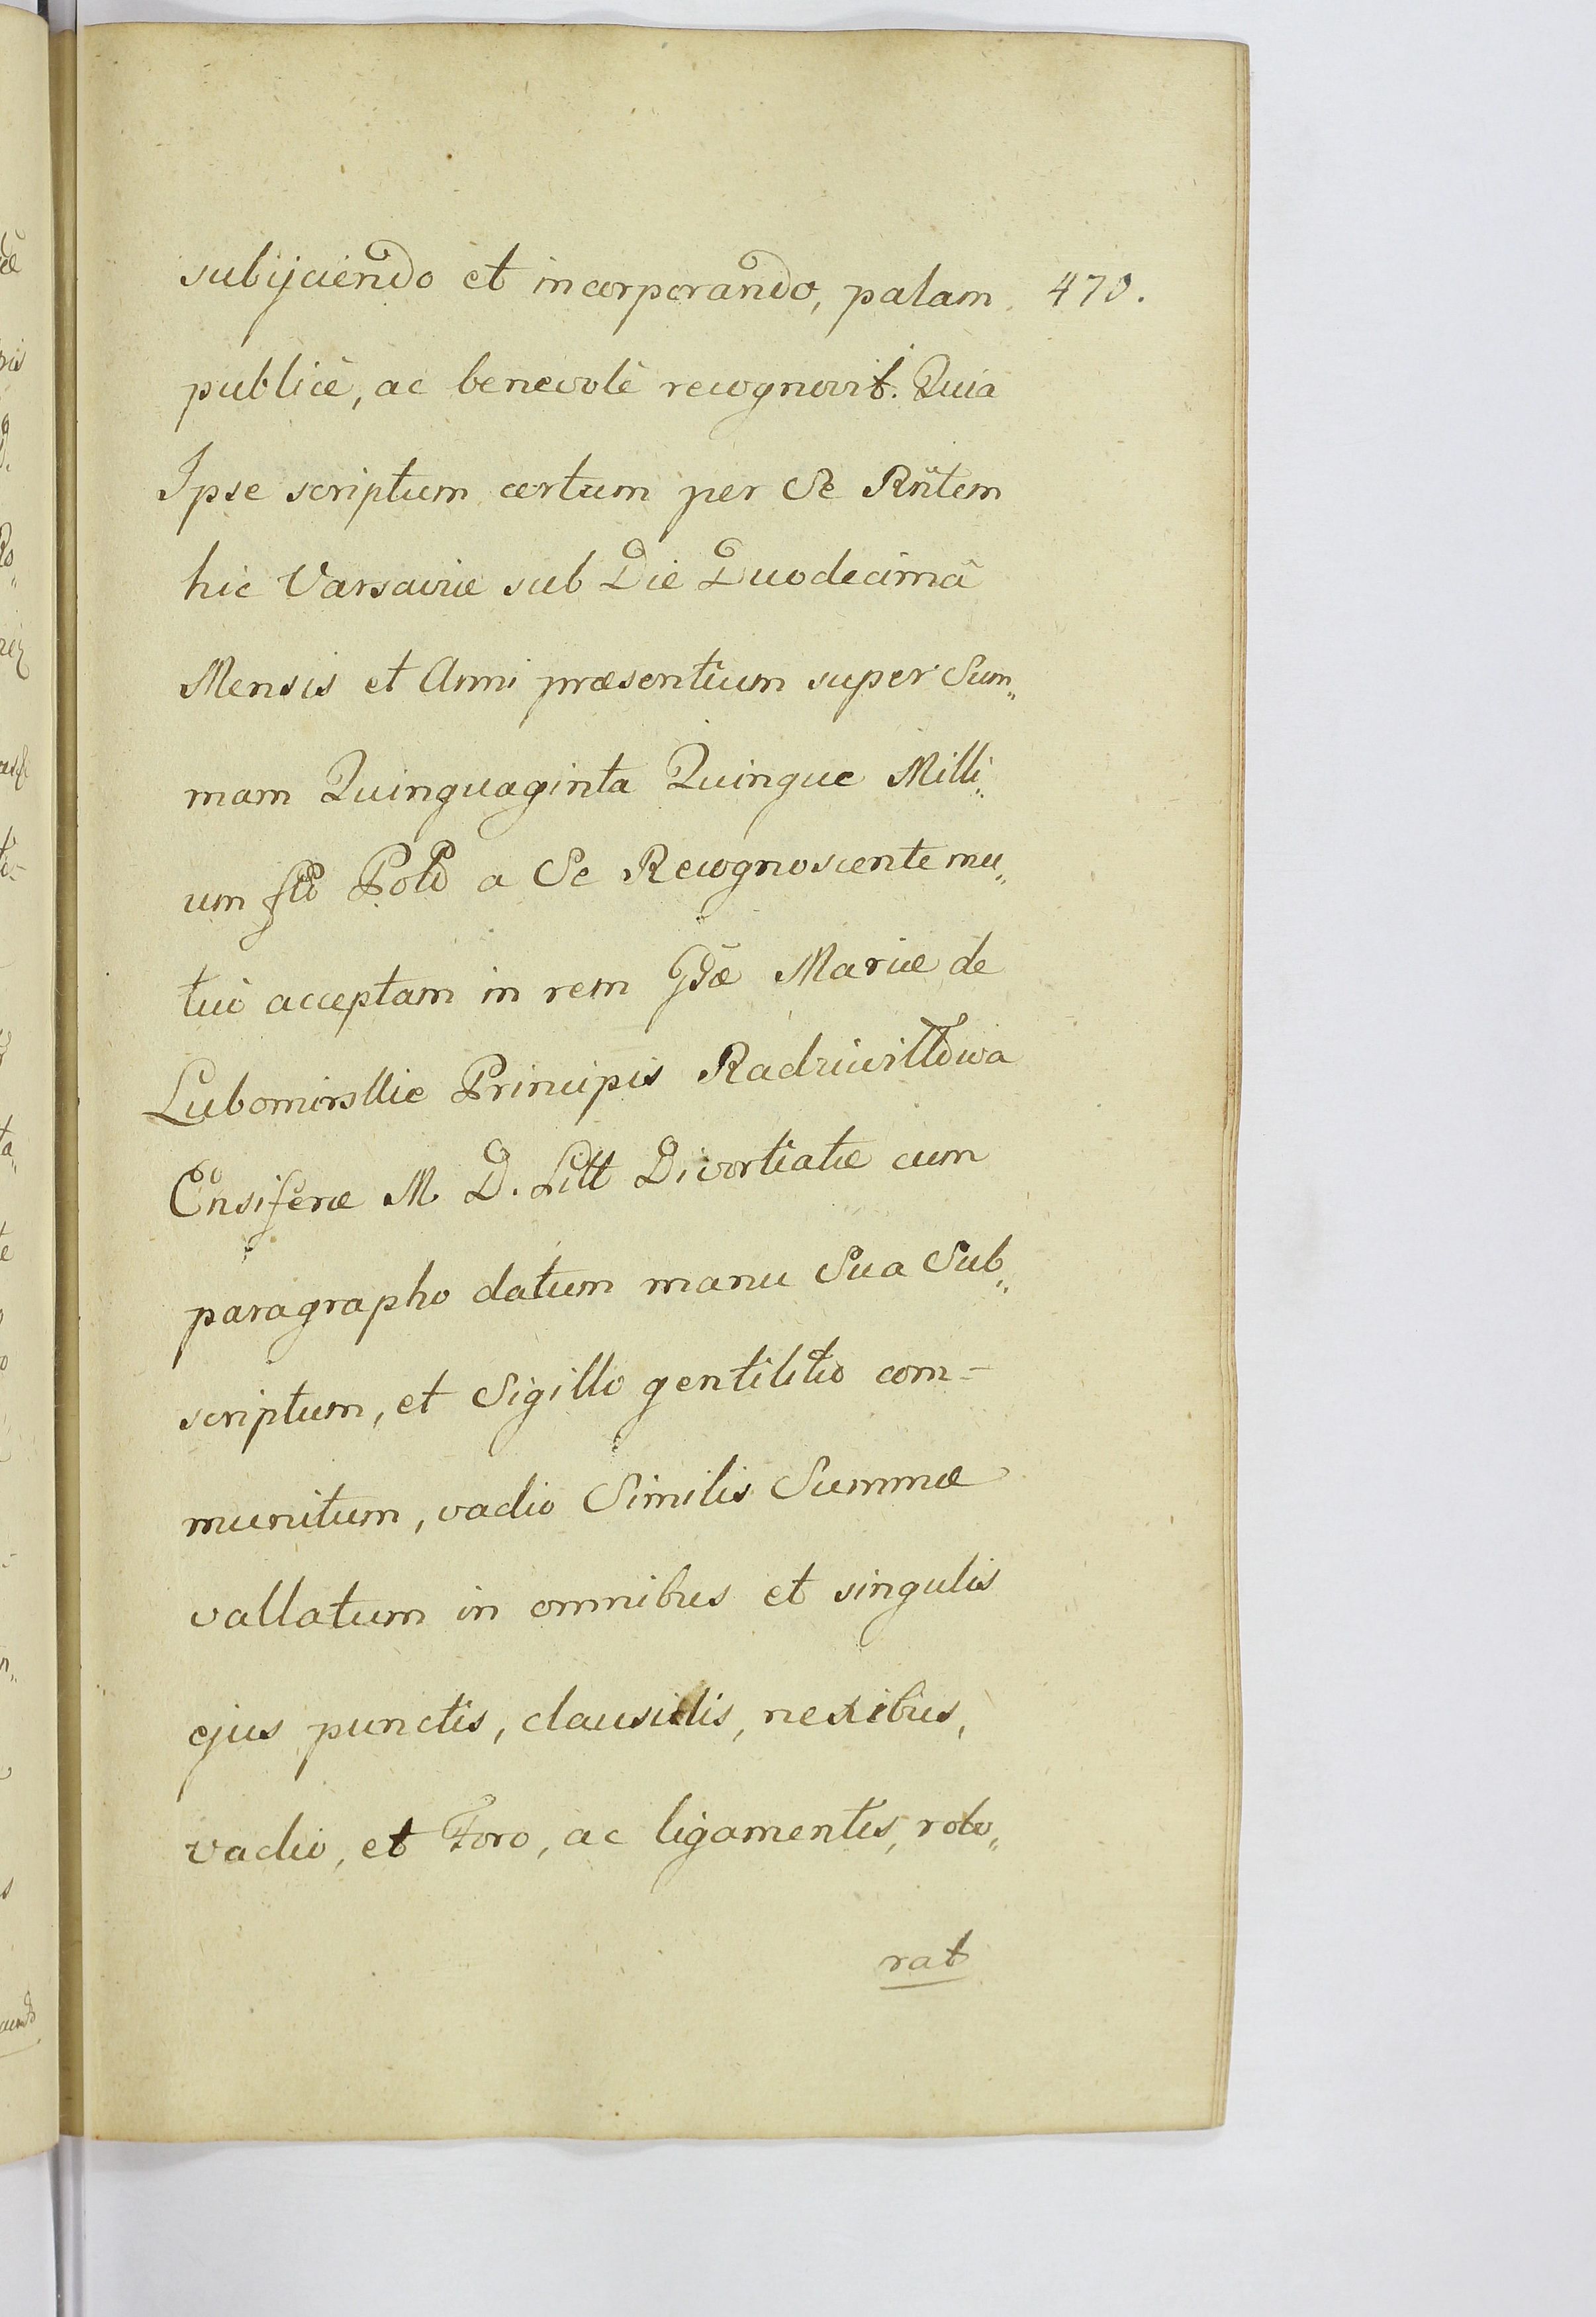 subijciendo et incorporando, palam 470.
publicè, ac benevolè recognovit. Quia
Ipse scriptum certum per Se Rñtem
hic Varsaviæ sub Die Duodecimâ
Mensis et Anni præsentium super Sum„
mam Quinquaginta Quinque Milli„
um flõ Polõ a Se Recognoscente mu„
tuò acceptam in rem Gdæ Mariæ de
Lubomirscie Principis Radziwiłłowa
Ensiferæ M. D. Litt Divortiatæ cum
paragrapho datum manu Sua Sub„
scriptum, et Sigillo gentilitio com=
munitum, vadio Similis Summæ
vallatum in omnibus et singulis
ejus punctis, clausulis, nexibus,
vadio, et Foro, ac ligamentis, robo„
rat